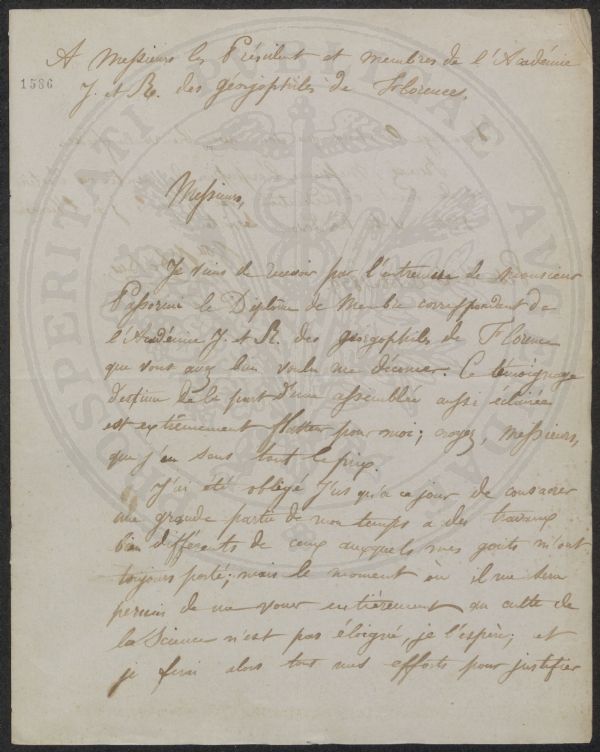 A Messieurs les Président et membres de l'Académie
1586
J. et R. des géorgophiles de Florence.
Messieurs,
Je viens de recevoir par l'entremise de Monsieur
Passerini le Diplôme de Membre correspondant de
l'Académie J. et R. des géorgophiles de Florence
que vous avez bien voulu me décerner. Ce témoignage
d'estime de la part d'une assemblée aussi éclairée
est extrêmement flatteur pour moi; croyez, Messieurs,
que j'en sens tout le prix.
J'ai été obligé jusqu'à ce jour de consacrer
une grande partie de mon temps à des travaux
bien différents de ceux auxquels mes goûts m'ont
toujours porté; mais le moment où il me sera
permis de me vouer entièrement au culte de
la Science n'est pas éloigné, je l'espère; et
je ferai alors tout mes efforts pour justifier
PROSPERITATI PUBLICAE AUGENDAE